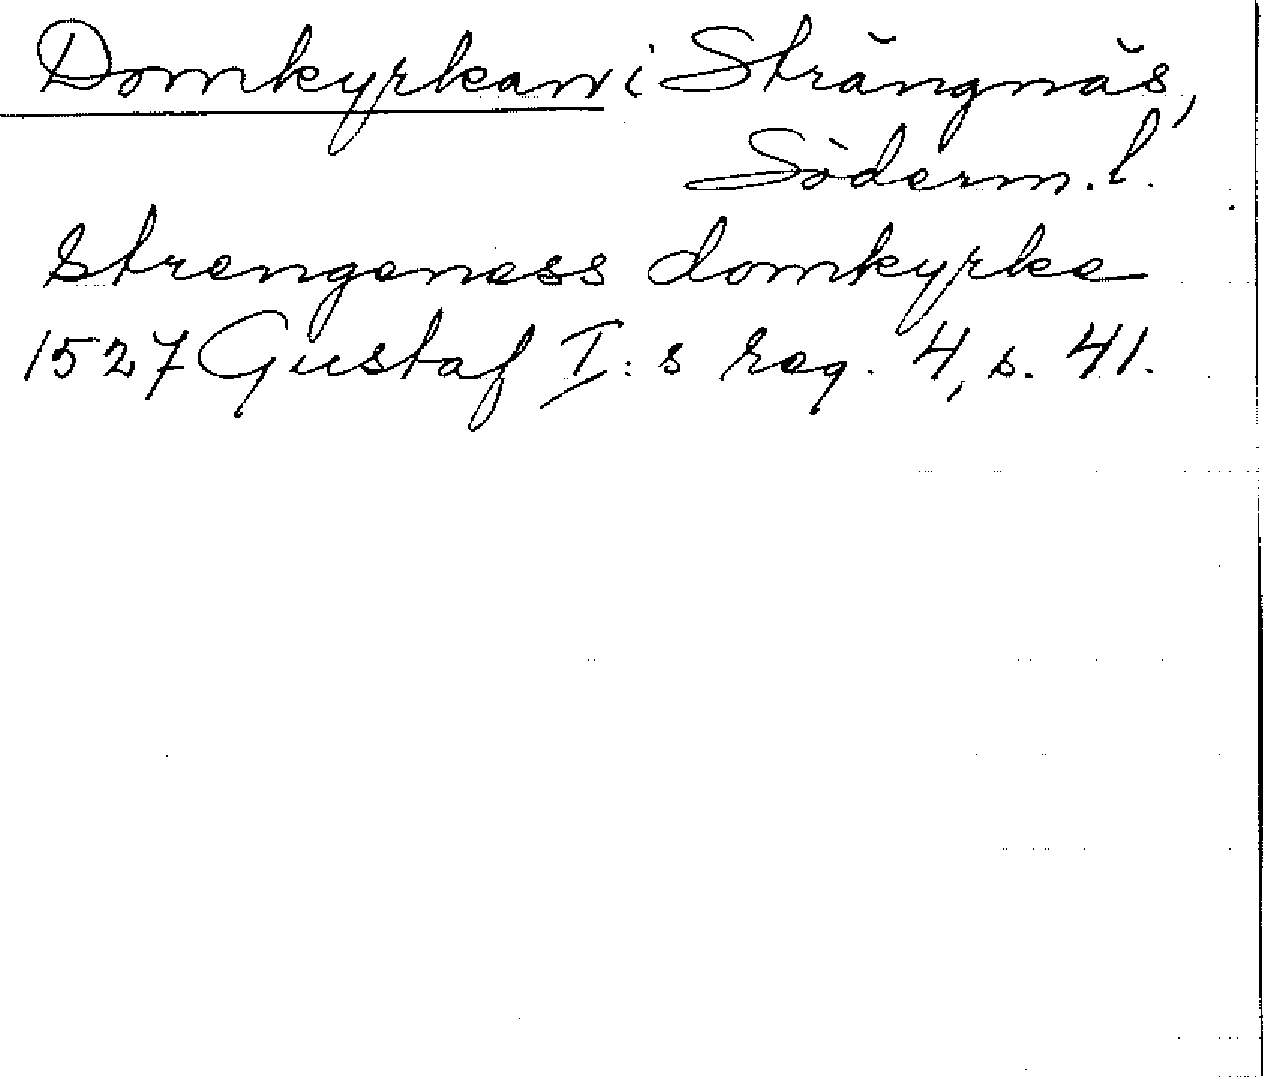 Domkyrkan i Strängnäs,
Söderm. l.
Strengeness domkyrke
1527 Gustaf I:s reg. 4, s. 41.